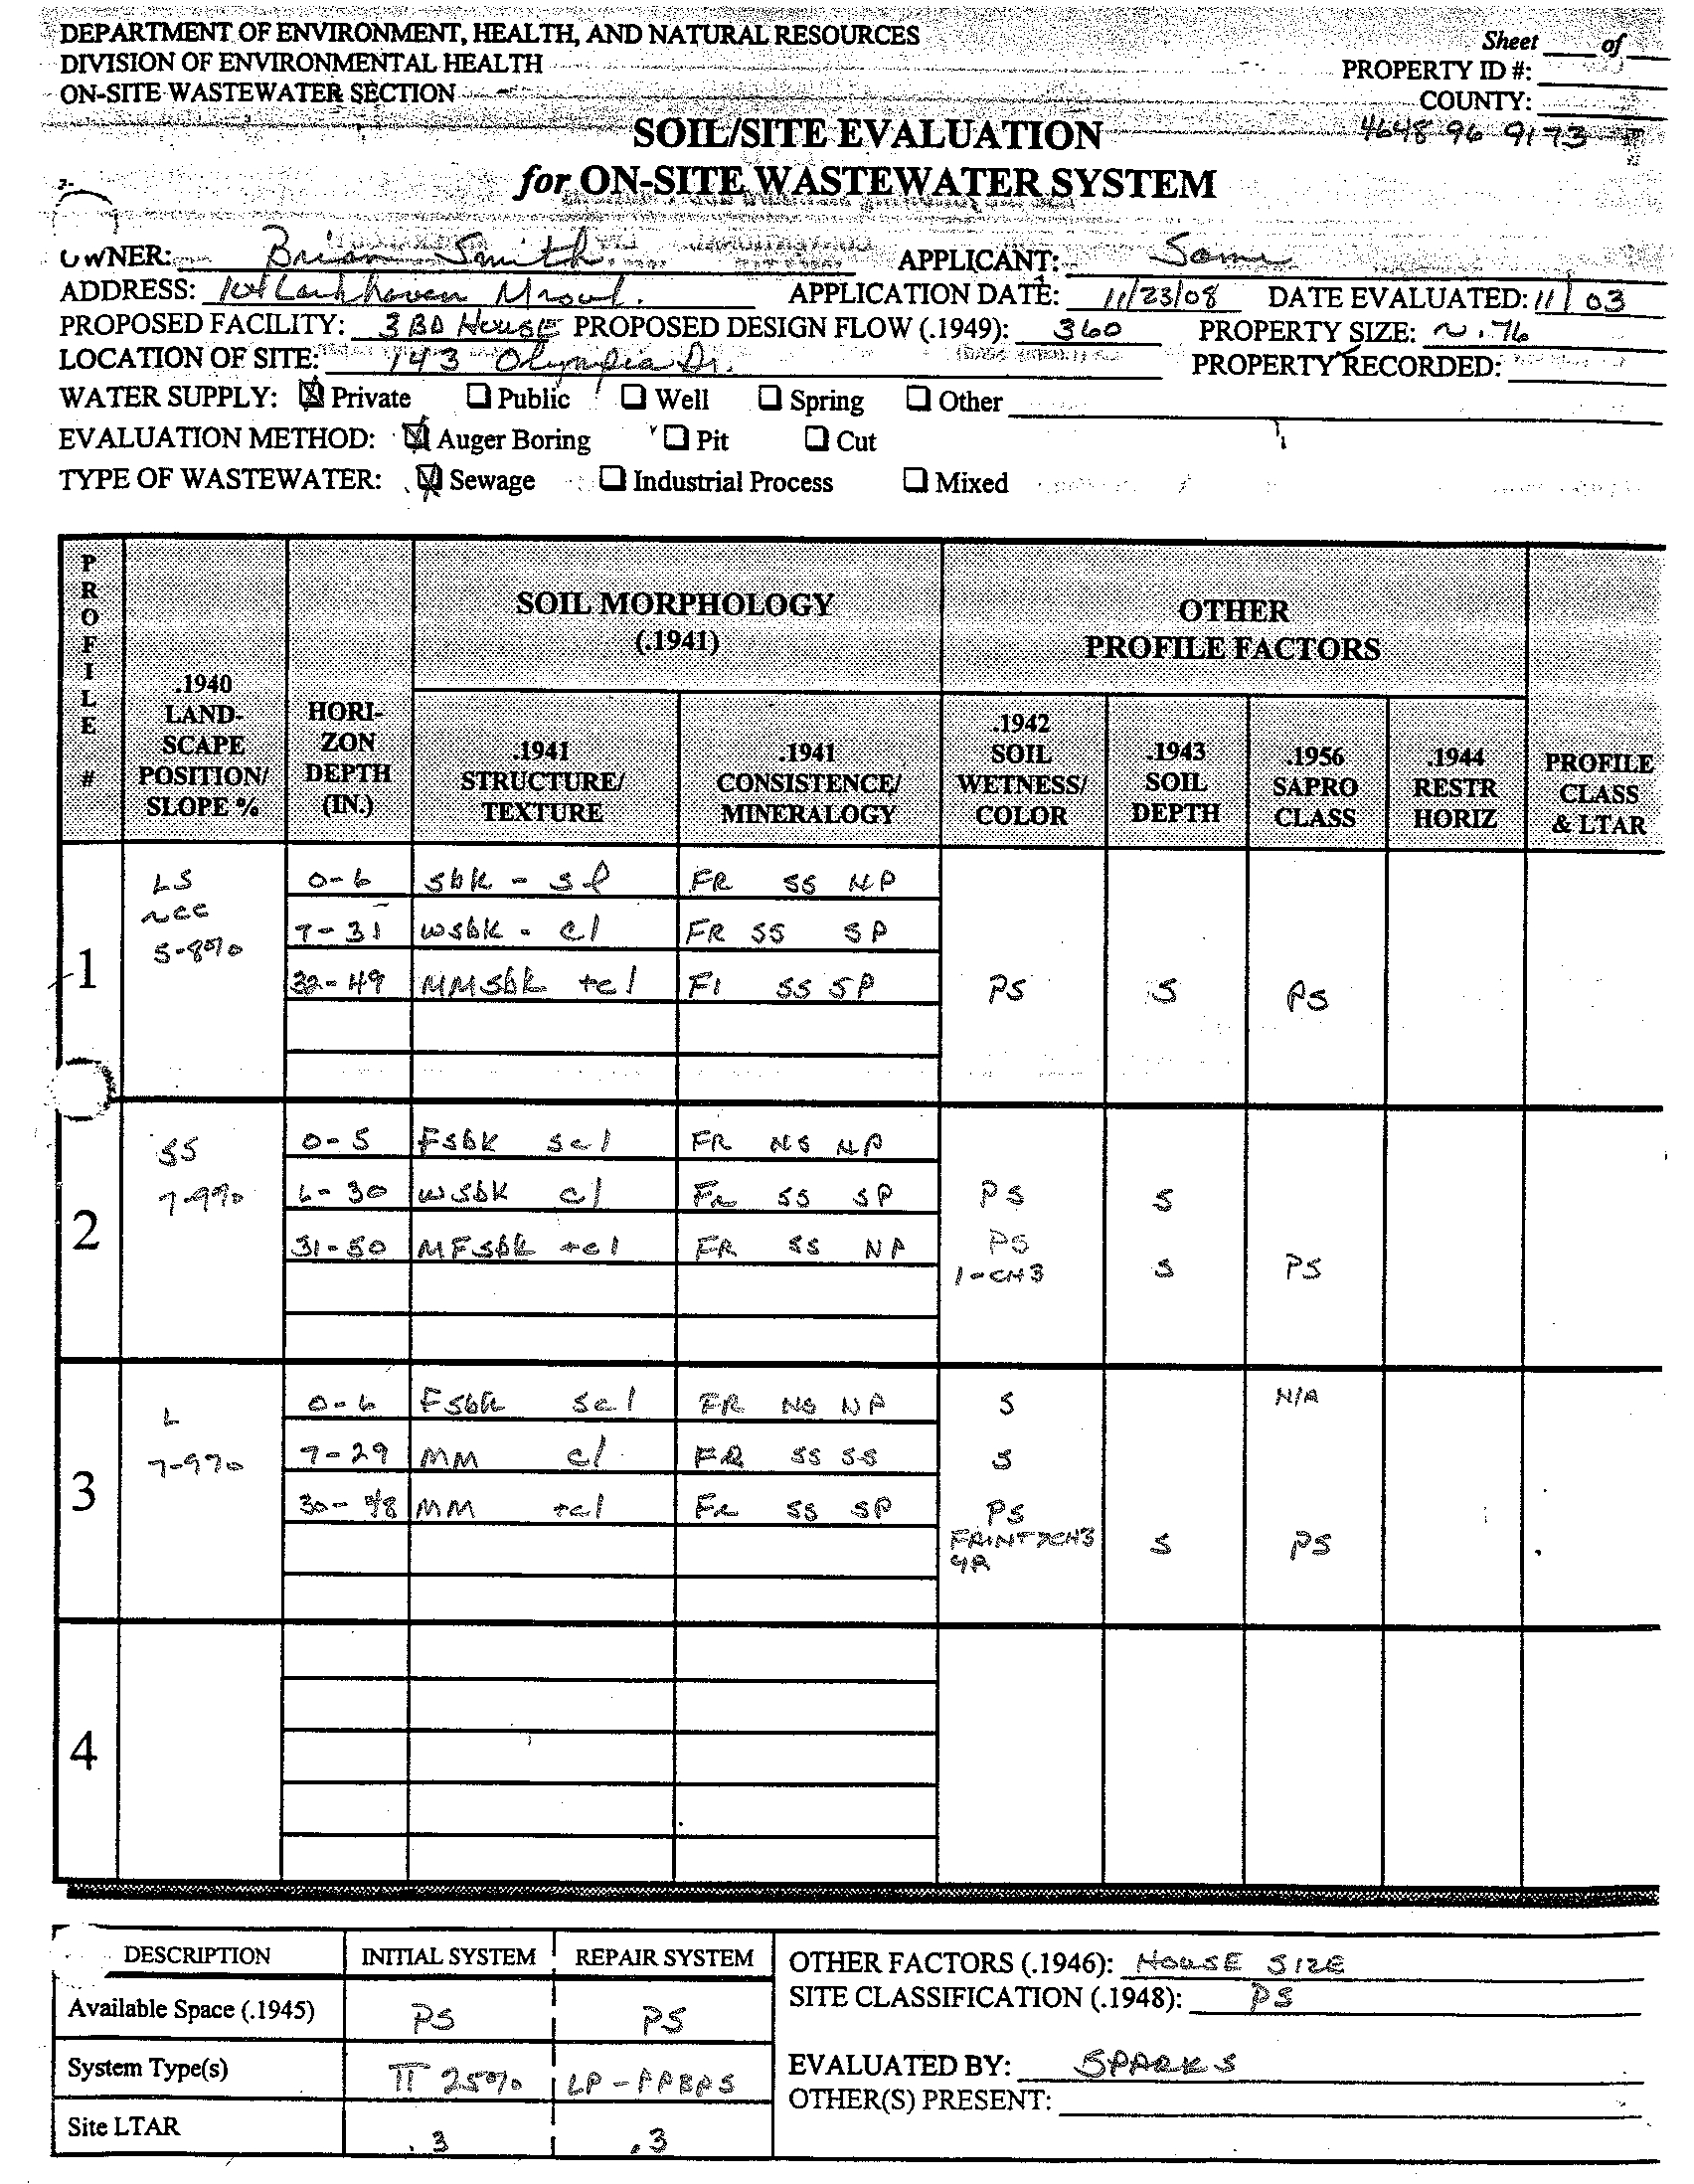 DEPARTMENT OF ENVIRONMENT, HEALTH, AND NATURAL RESOURCES
DIVISION OF ENVIRONMENTAL HEALTH
ON-SITE WASTEWATER SECTION
Sheet ____ of ____
PROPERTY ID #:
COUNTY:
4648 96 9173
SOIL/SITE EVALUATION
for ON-SITE WASTEWATER SYSTEM
OWNER: Brian Smith APPLICANT: Same
ADDRESS: APPLICATION DATE: 11/23/08 DATE EVALUATED: 11/03
PROPOSED FACILITY: 3 BD HOUSE PROPOSED DESIGN FLOW (.1949): 360 PROPERTY SIZE: ~.76
LOCATION OF SITE: 143 Olympia Dr. PROPERTY RECORDED:
WATER SUPPLY: ☒ Private ☐ Public ☐ Well ☐ Spring ☐ Other
EVALUATION METHOD: ☒ Auger Boring ☐ Pit ☐ Cut
TYPE OF WASTEWATER: ☒ Sewage ☐ Industrial Process ☐ Mixed
PROFILE #
.1940 LAND-SCAPE POSITION/ SLOPE %
HORI-ZON DEPTH (IN.)
SOIL MORPHOLOGY (.1941)
.1941 STRUCTURE/ TEXTURE
.1941 CONSISTENCE/ MINERALOGY
OTHER PROFILE FACTORS
.1942 SOIL WETNESS/ COLOR
.1943 SOIL DEPTH
.1956 SAPRO CLASS
.1944 RESTR HORIZ
PROFILE CLASS & LTAR
1
LS
~CC
5-8%
0-6 sbk - sl FR SS NP
7-31 wsbk - cl FR SS SP
32-49 MMsbk +cl FI SS SP PS S PS
2
SS
7-9%
0-5 Fsbk scl FR NS NP
6-30 wsbk cl Fr SS SP PS S
31-50 MFsbk +cl FR SS NP PS
1-CH3 S PS
3
L
7-9%
0-6 Fsbk scl FR NS NP S N/A
7-29 MM cl FR SS SS S
30-48 MM +cl Fr SS SP PS
FAINT >CH3 S PS
4
DESCRIPTION INITIAL SYSTEM REPAIR SYSTEM
Available Space (.1945) PS PS
System Type(s) II 25% LP-PPBPS
Site LTAR .3 .3
OTHER FACTORS (.1946): HOUSE SIZE
SITE CLASSIFICATION (.1948): PS
EVALUATED BY: SPARKS
OTHER(S) PRESENT: